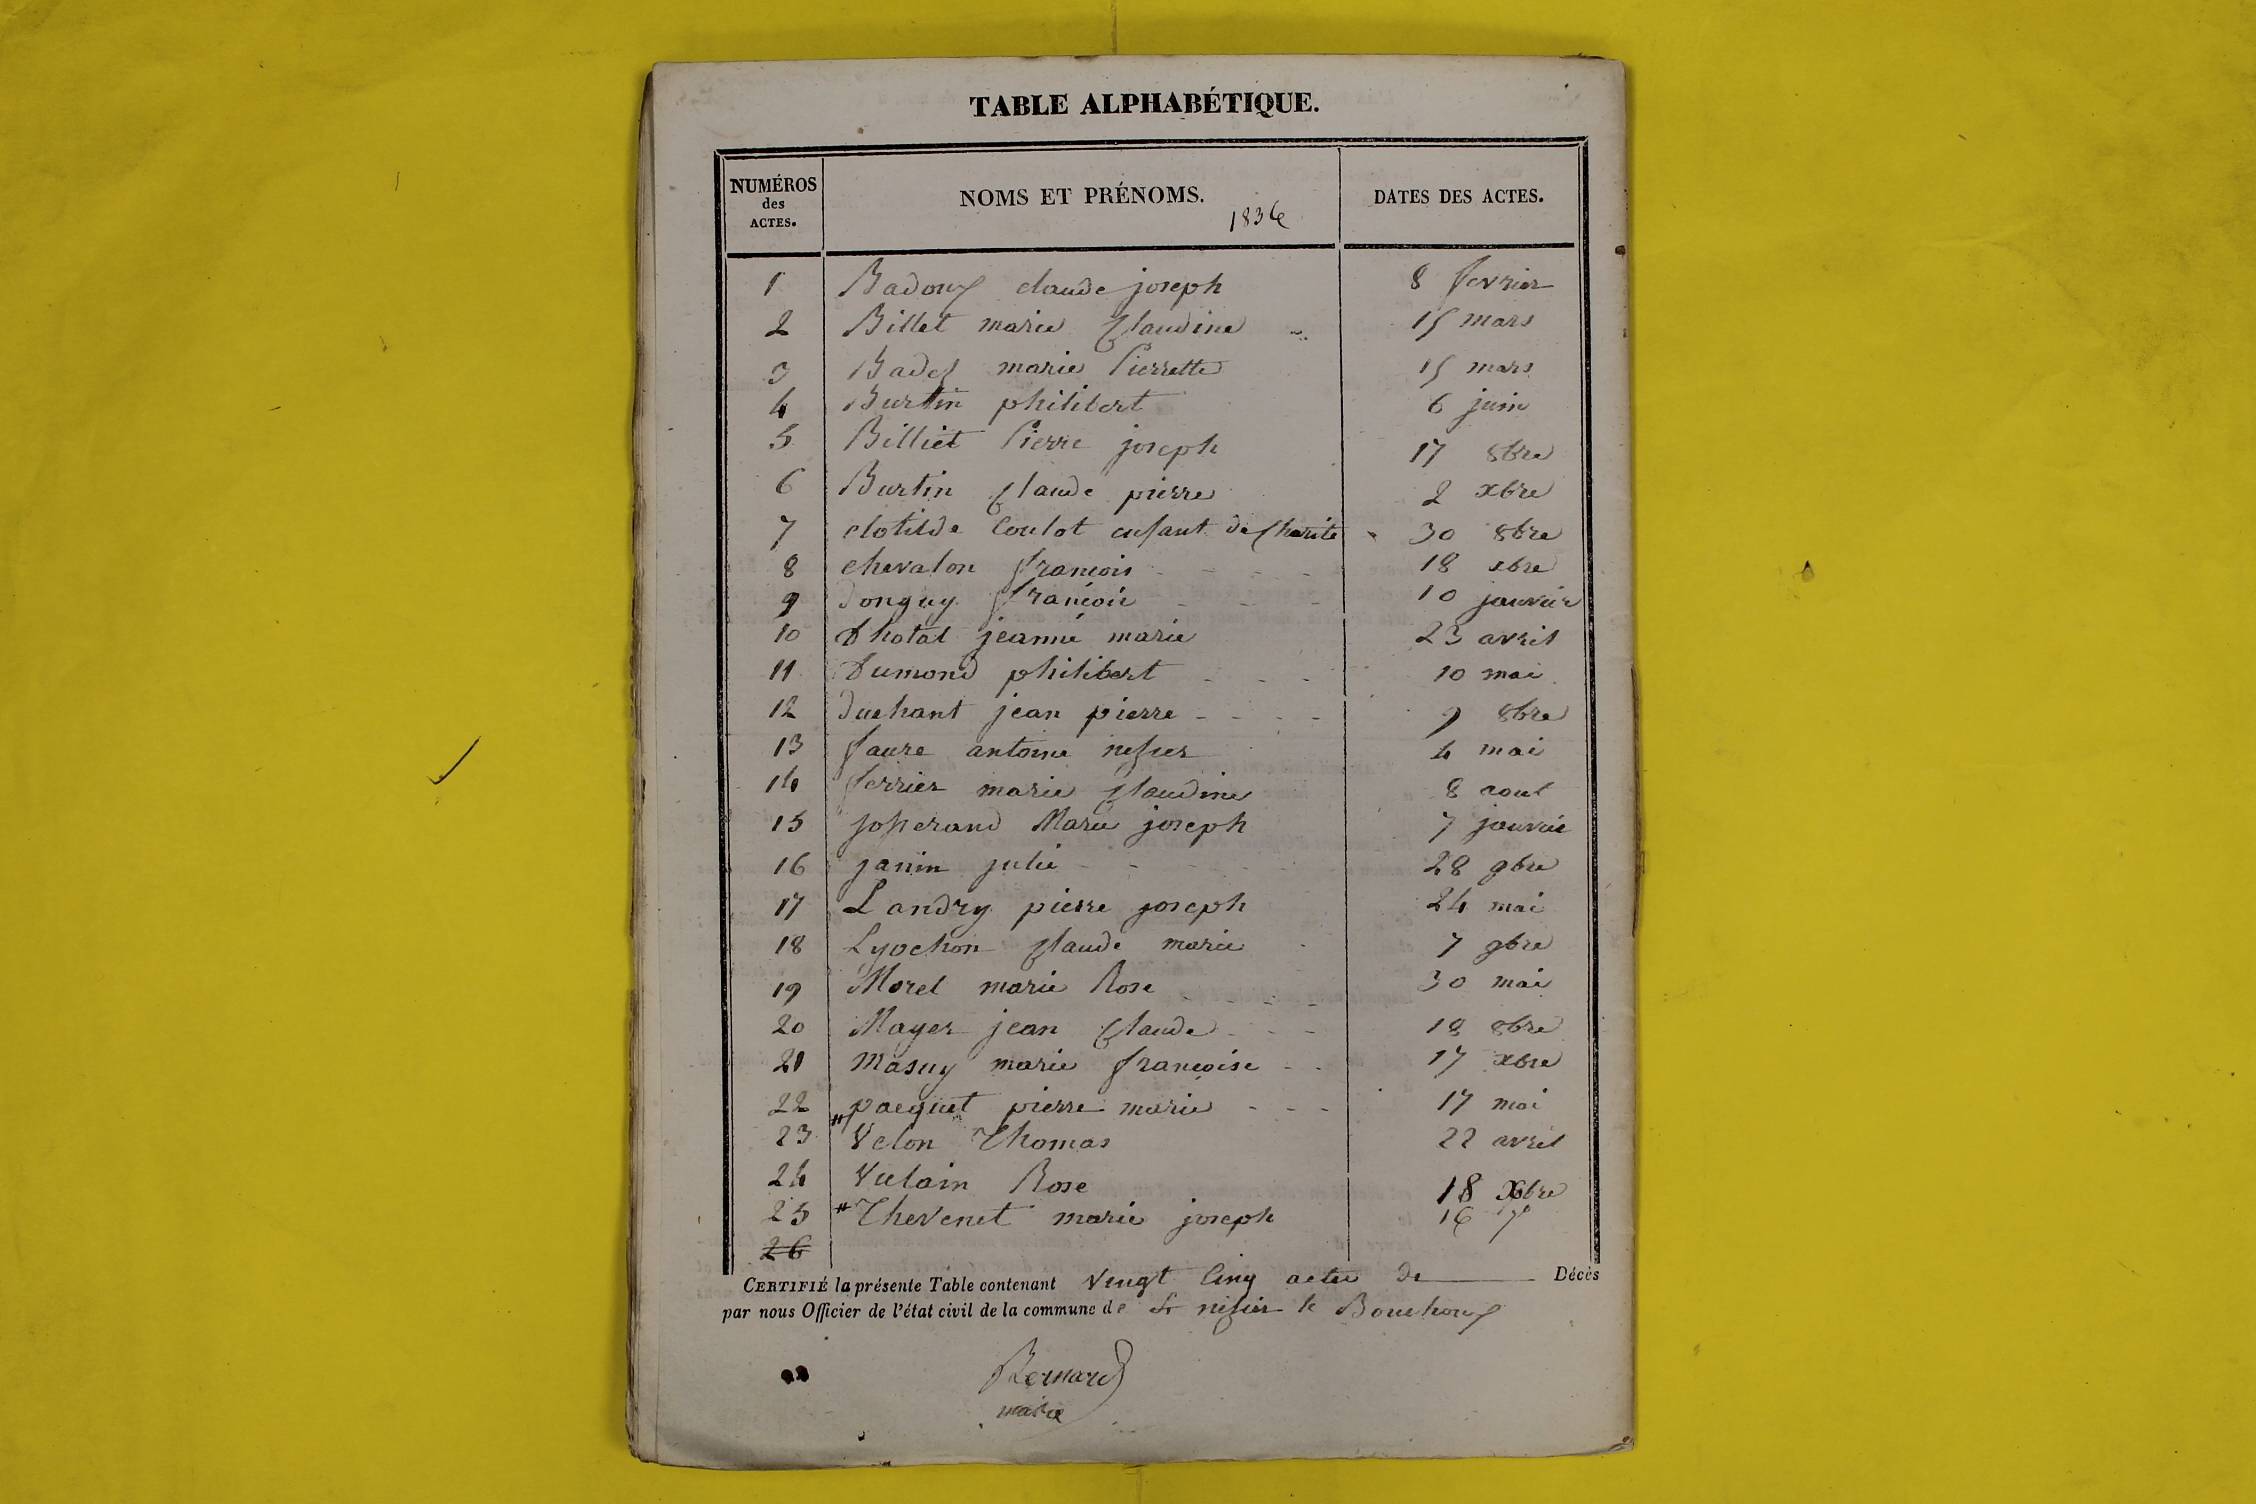 TABLE ALPHABÉTIQUE.
NUMÉROS des ACTES. NOMS ET PRÉNOMS. 1836 DATES DES ACTES.
1 Badoux claude joseph 8 fevrier
2 Billet marie Claudine 15 mars
3 Badez marie Pierrette 15 mars
4 Burtin philibert 6 juin
5 Billiet Pierre joseph 17 8bre
6 Burtin Claude pierre 2 xbre
7 clotilde Coulot enfant de Charité 30 8bre
8 chevalon francois 18 xbre
9 Donguy francois 10 janvier
10 Dhotal jeanne marie 23 avril
11 Dumond philibert 10 mai
12 Duchant jean pierre 9 8bre
13 faure antoine nisier 4 mai
14 ferrier marie Claudine 8 aout
15 josserand Marie joseph 7 janvier
16 janin julie 28 9bre
17 Landry pierre joseph 24 mai
18 Lyochon Claude marie 7 9bre
19 Morel marie Rose 30 mai
20 Mayer jean Claude 18 8bre
21 Masuy marie francoise 17 xbre
22 pacquet pierre marie 17 mai
23 Velon Thomas 22 avril
24 Vulain Rose 18 Xbre
25 Thevenet marie joseph 16
26
CERTIFIÉ la présente Table contenant Vingt Cinq actes de Décès
par nous Officier de l'état civil de la commune de St nisier le Bouchoux
Bernard
maire